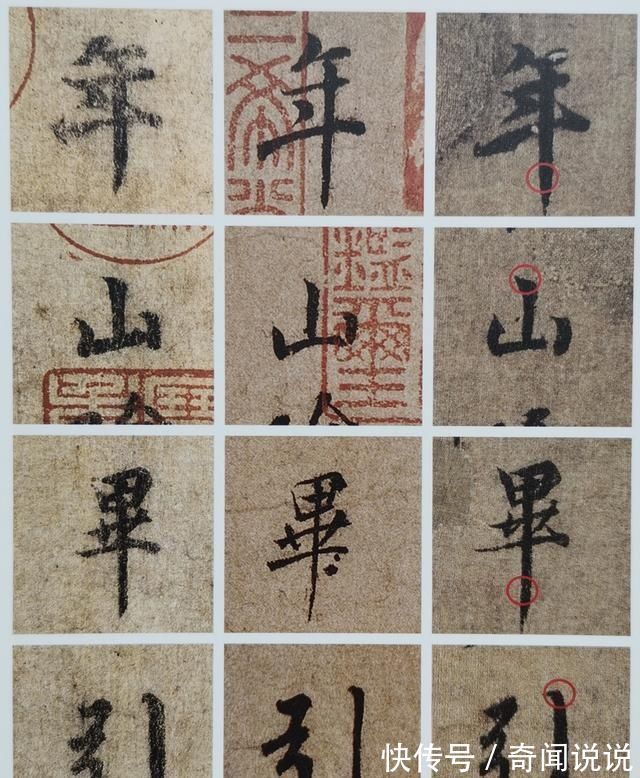 年 年 年
山 山 山
畢 畢 畢
引 引 引
快传号 / 奇闻说说